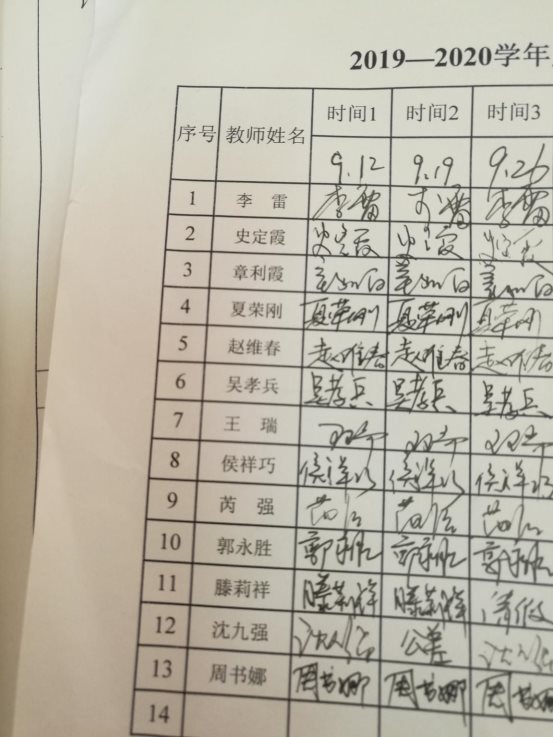 2019—2020学年
序号 教师姓名 时间1 时间2 时间3
9.12 9.19 9.26
1 李 雷 李雷 李雷 李雷
2 史定霞 史定霞 史定霞 史定霞
3 章利霞 章利霞 章利霞 章利霞
4 夏荣刚 夏荣刚 夏荣刚 夏荣刚
5 赵维春 赵维春 赵维春 赵维春
6 吴孝兵 吴孝兵 吴孝兵 吴孝兵
7 王 瑞 王瑞 王瑞 王瑞
8 侯祥巧 侯祥巧 侯祥巧 侯祥巧
9 芮 强 芮强 芮强 芮强
10 郭永胜 郭永胜 郭永胜 郭永胜
11 滕莉祥 滕莉祥 滕莉祥 请假
12 沈九强 沈九强 公差 沈九强
13 周书娜 周书娜 周书娜 周书娜
14